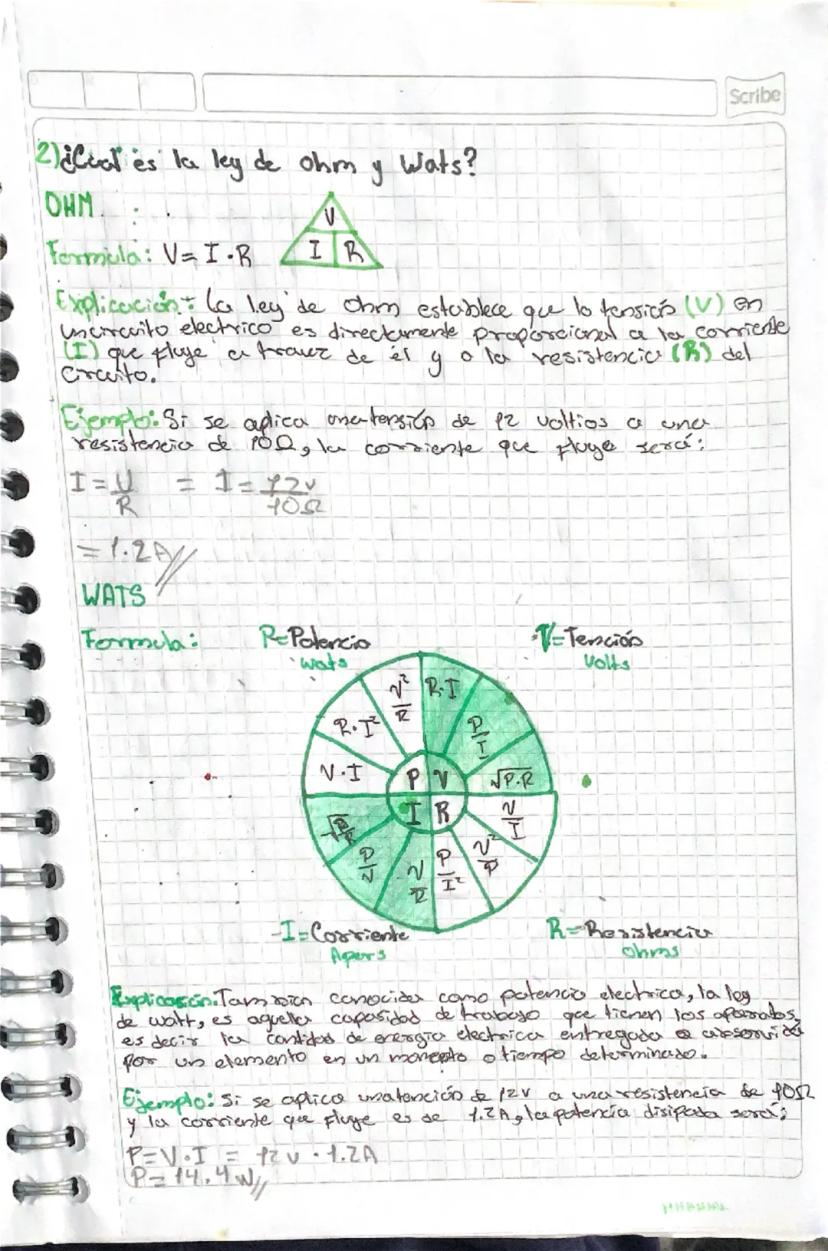 Scribe
2)¿Cual es la ley de ohm y Wats?
OHM
Formula: V= I·R
V
I R
Explicación: la ley de ohm establece que la tensión (V) en
un circuito electrico es directamente proporcional a la corriente
(I) que fluye a travez de él y a la resistencia (R) del
circuito.
Ejemplo: Si se aplica una tensión de 12 voltios a una
resistencia de 10Ω, la corriente que fluye será:
I = V/R = I = 12v/10Ω
= 1.2A//
WATS
Formula: P=Potencia V=Tención
wats Volts
V²/R R·I
R·I² P/I
V·I P V √P·R
I R V/I
P/V V/R P/I² V²/P
I=Corriente R=Resistencia
Apers ohms
Explicación: Tambien conocida como potencia electrica, la ley
de watt, es aquella capasidad de trabajo que tienen los aparatos,
es decir la cantidad de energia electrica entregada o absorvida
por un elemento en un momento o tiempo determinado.
Ejemplo: Si se aplica una tención de 12v a una resistencia de 10Ω
y la corriente que fluye es de 1.2A, la potencia disipada será:
P=V·I = 12v · 1.2A
P= 14.4w//